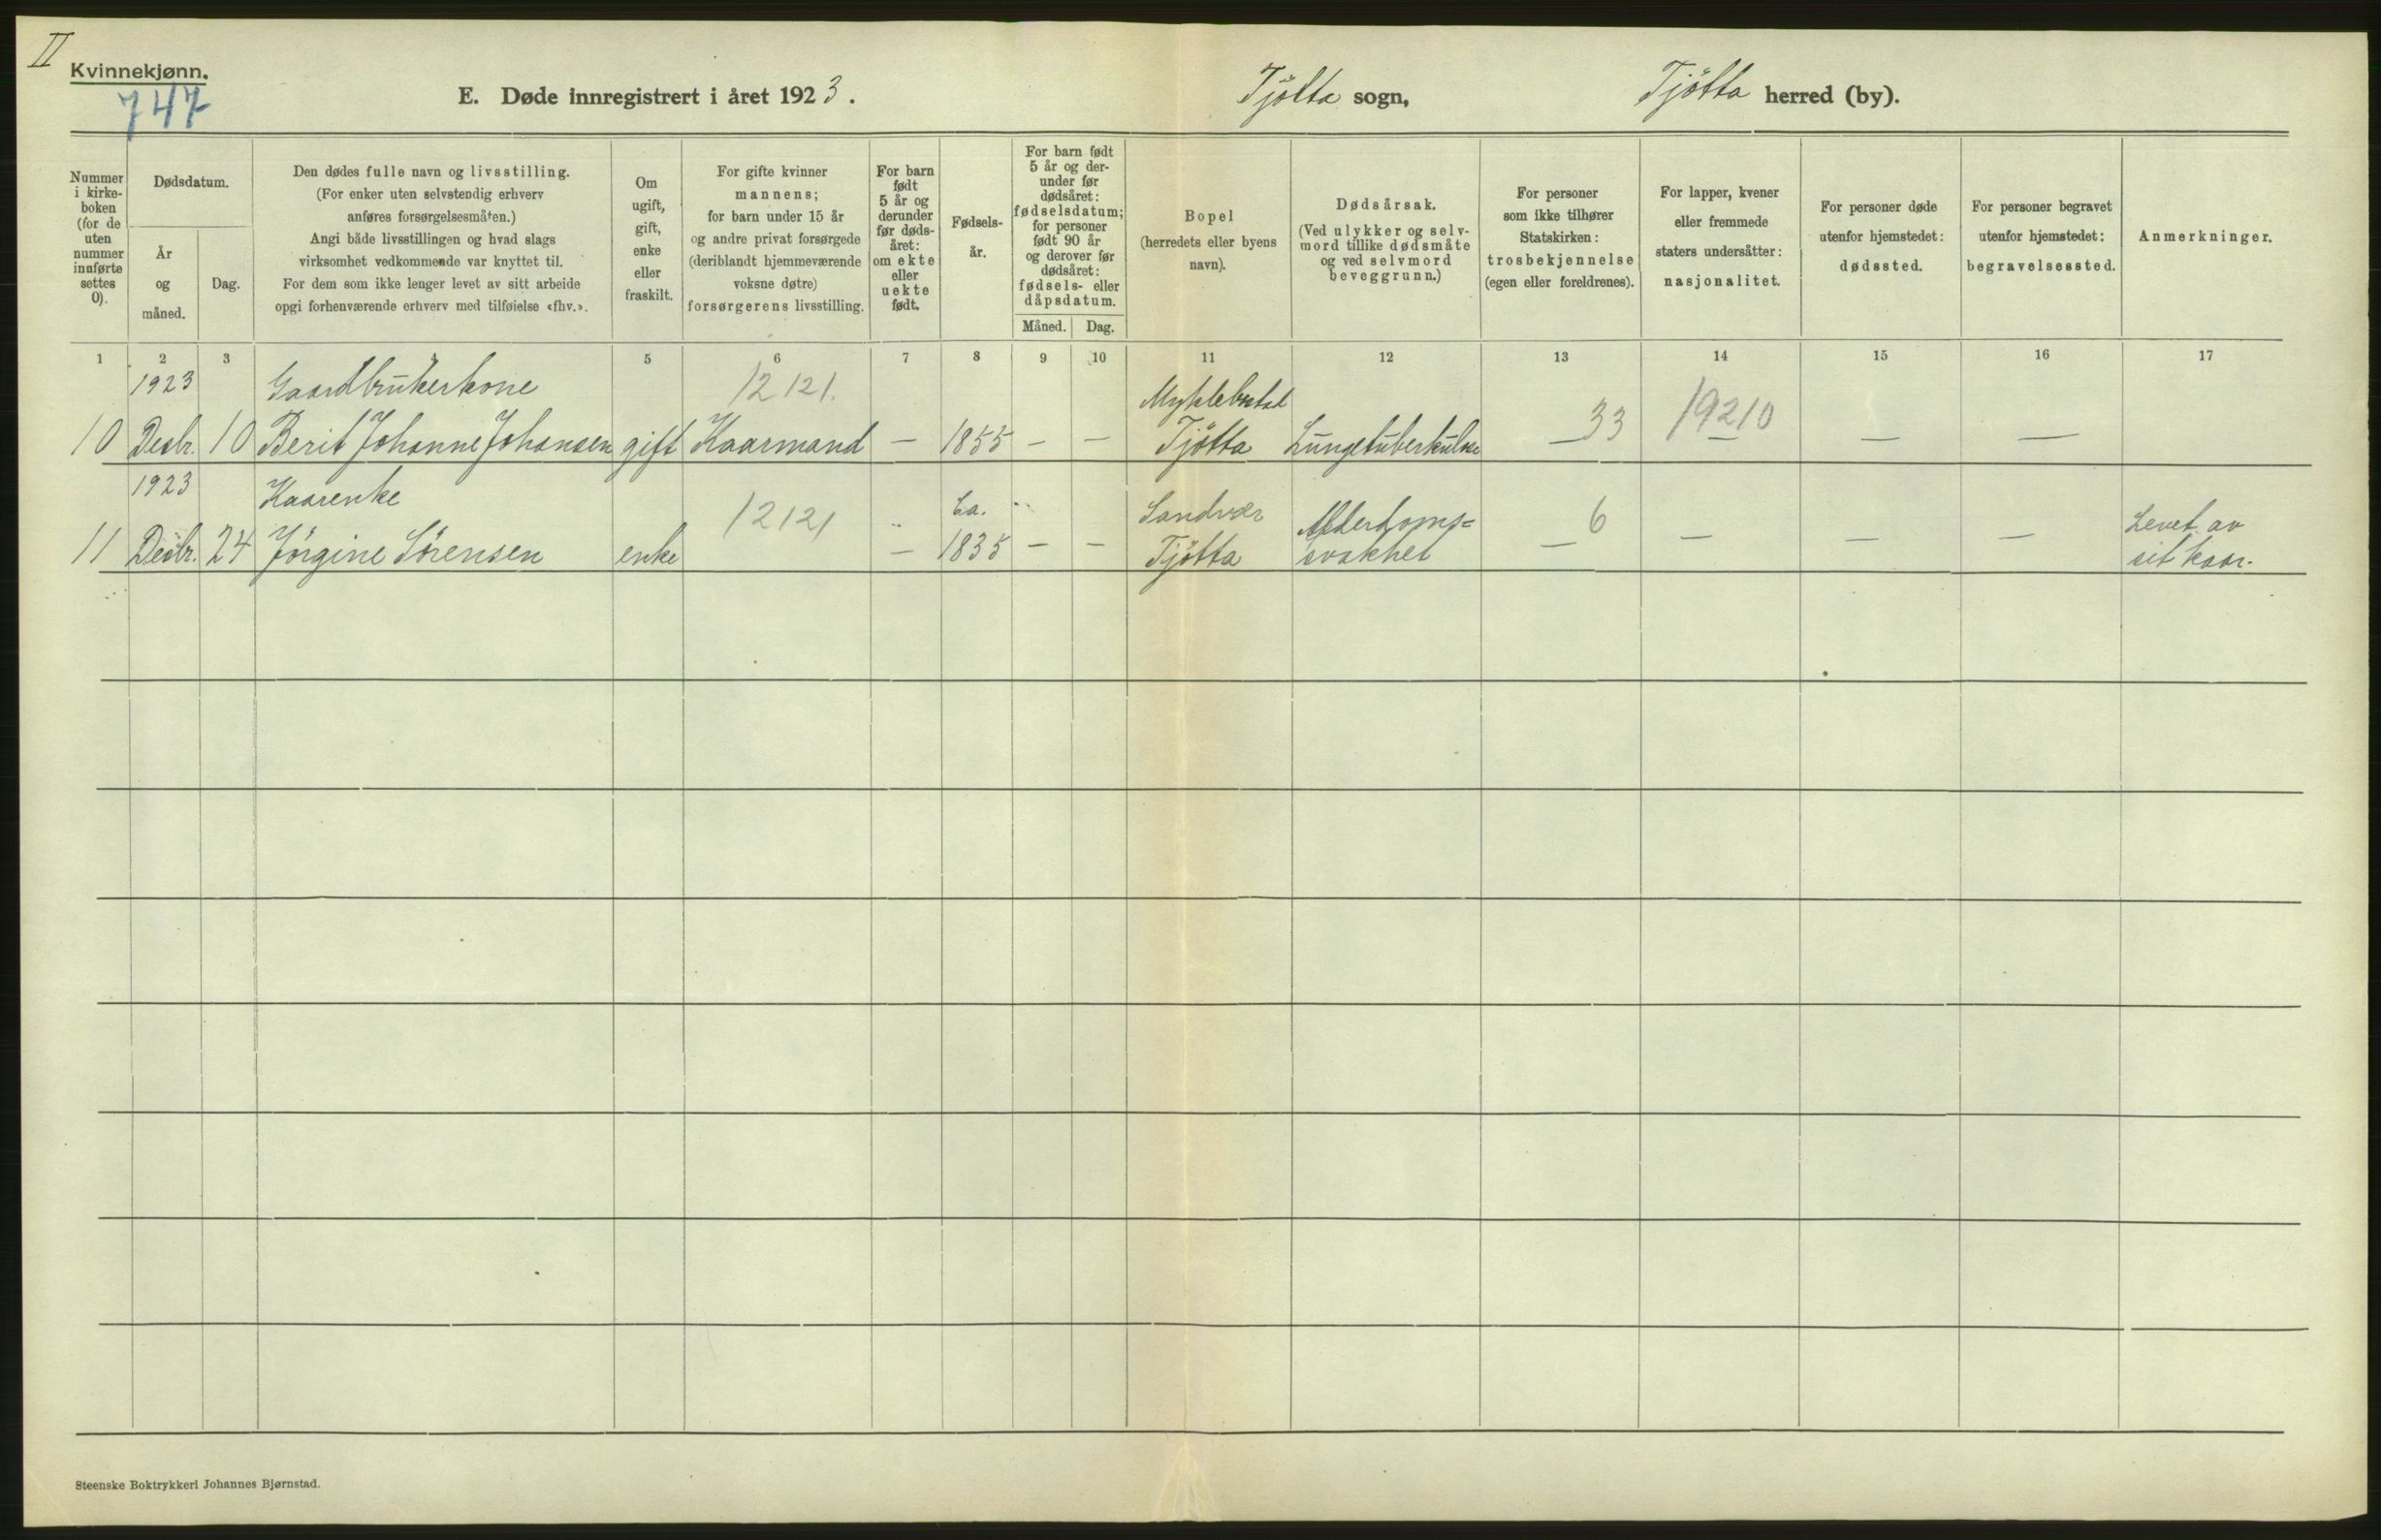 II
Kvinnekjønn.
747
E. Døde innregistrert i året 1923.
Tjötta sogn,
Tjötta herred (by).
Nummer
i kirke-
boken
(for de
uten
nummer
innførte
settes
0).
Dødsdatum.
År
og
måned.
Dag.
Den dødes fulle navn og livsstilling.
(For enker uten selvstendig erhverv
anføres forsørgelsesmåten.)
Angi både livsstillingen og hvad slags
virksomhet vedkommende var knyttet til.
For dem som ikke lenger levet av sitt arbeide
opgi forhenværende erhverv med tilføielse «fhv.».
Om
ugift,
gift,
enke
eller
fraskilt.
For gifte kvinner
mannens;
for barn under 15 år
og andre privat forsørgede
(deriblandt hjemmeværende
voksne døtre)
forsørgerens livsstilling.
For barn
født
5 år og
derunder
før døds-
året:
om ekte
eller
uekte
født.
Fødsels-
år.
For barn født
5 år og der-
under før
dødsåret:
fødselsdatum;
for personer
født 90 år
og derover før
dødsåret:
fødsels- eller
dåpsdatum.
Måned.
Dag.
Bopel
(herredets eller byens
navn).
Dødsårsak.
(Ved ulykker og selv-
mord tillike dødsmåte
og ved selvmord
beveggrunn.)
For personer
som ikke tilhører
Statskirken:
trosbekjennelse
(egen eller foreldrenes).
For lapper, kvener
eller fremmede
staters undersåtter:
nasjonalitet.
For personer døde
utenfor hjemstedet:
dødssted.
For personer begravet
utenfor hjemstedet:
begravelsessted.
Anmerkninger.
1 2 3 5 6 7 8 9 10 11 12 13 14 15 16 17
1923 Gaardbrukerkone 12121. Myklebostad
10 Desbr. 10 Berit Johanne Johansen gift Kaarmand — 1855 — — Tjötta Lungetuberkulose — 33 19210 — — —
1923 Kaarenke 12121 Ca. Sandvær Alderdoms= 6 Levet av
11 Desbr. 24 Jörgine Sörensen enke — 1835 — — Tjötta svakhet — — — — sit kaar.
Steenske Boktrykkeri Johannes Bjørnstad.